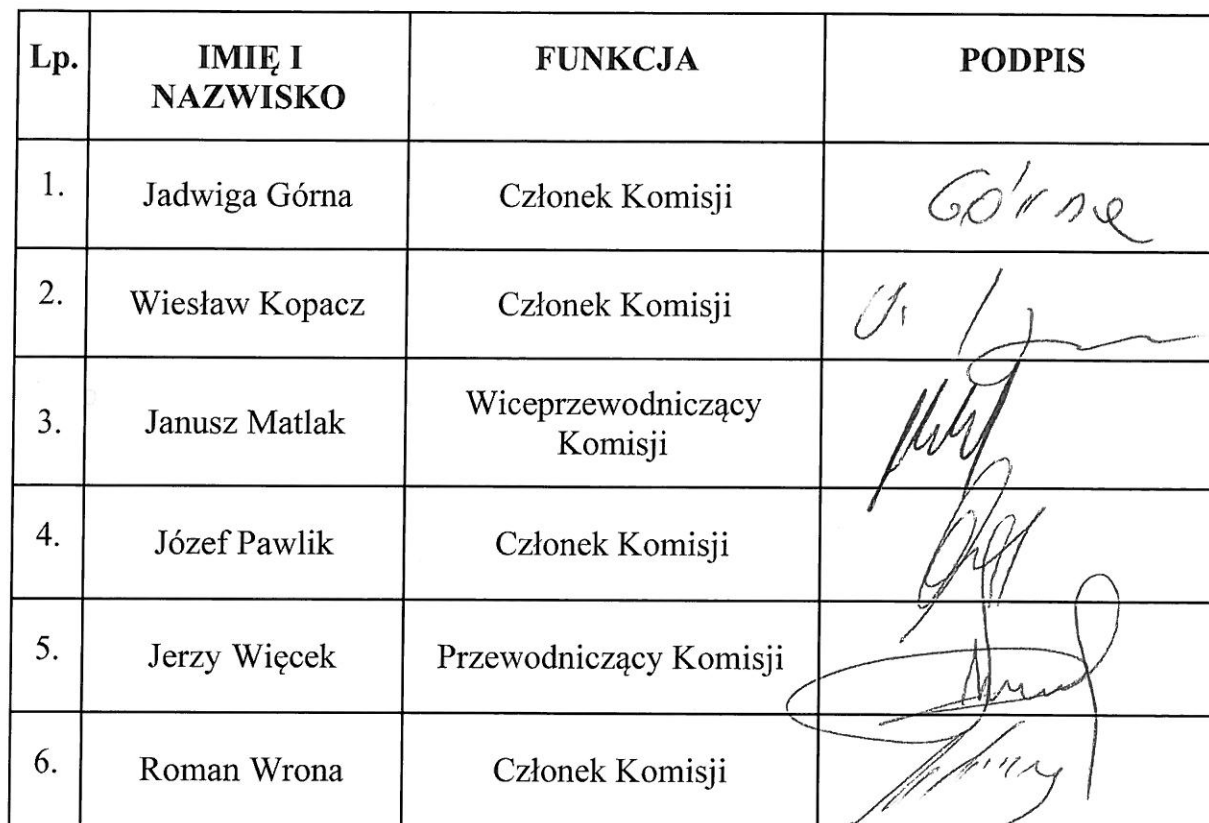 Lp. IMIĘ I NAZWISKO FUNKCJA PODPIS
1. Jadwiga Górna Członek Komisji Górna
2. Wiesław Kopacz Członek Komisji
3. Janusz Matlak Wiceprzewodniczący Komisji
4. Józef Pawlik Członek Komisji
5. Jerzy Więcek Przewodniczący Komisji
6. Roman Wrona Członek Komisji